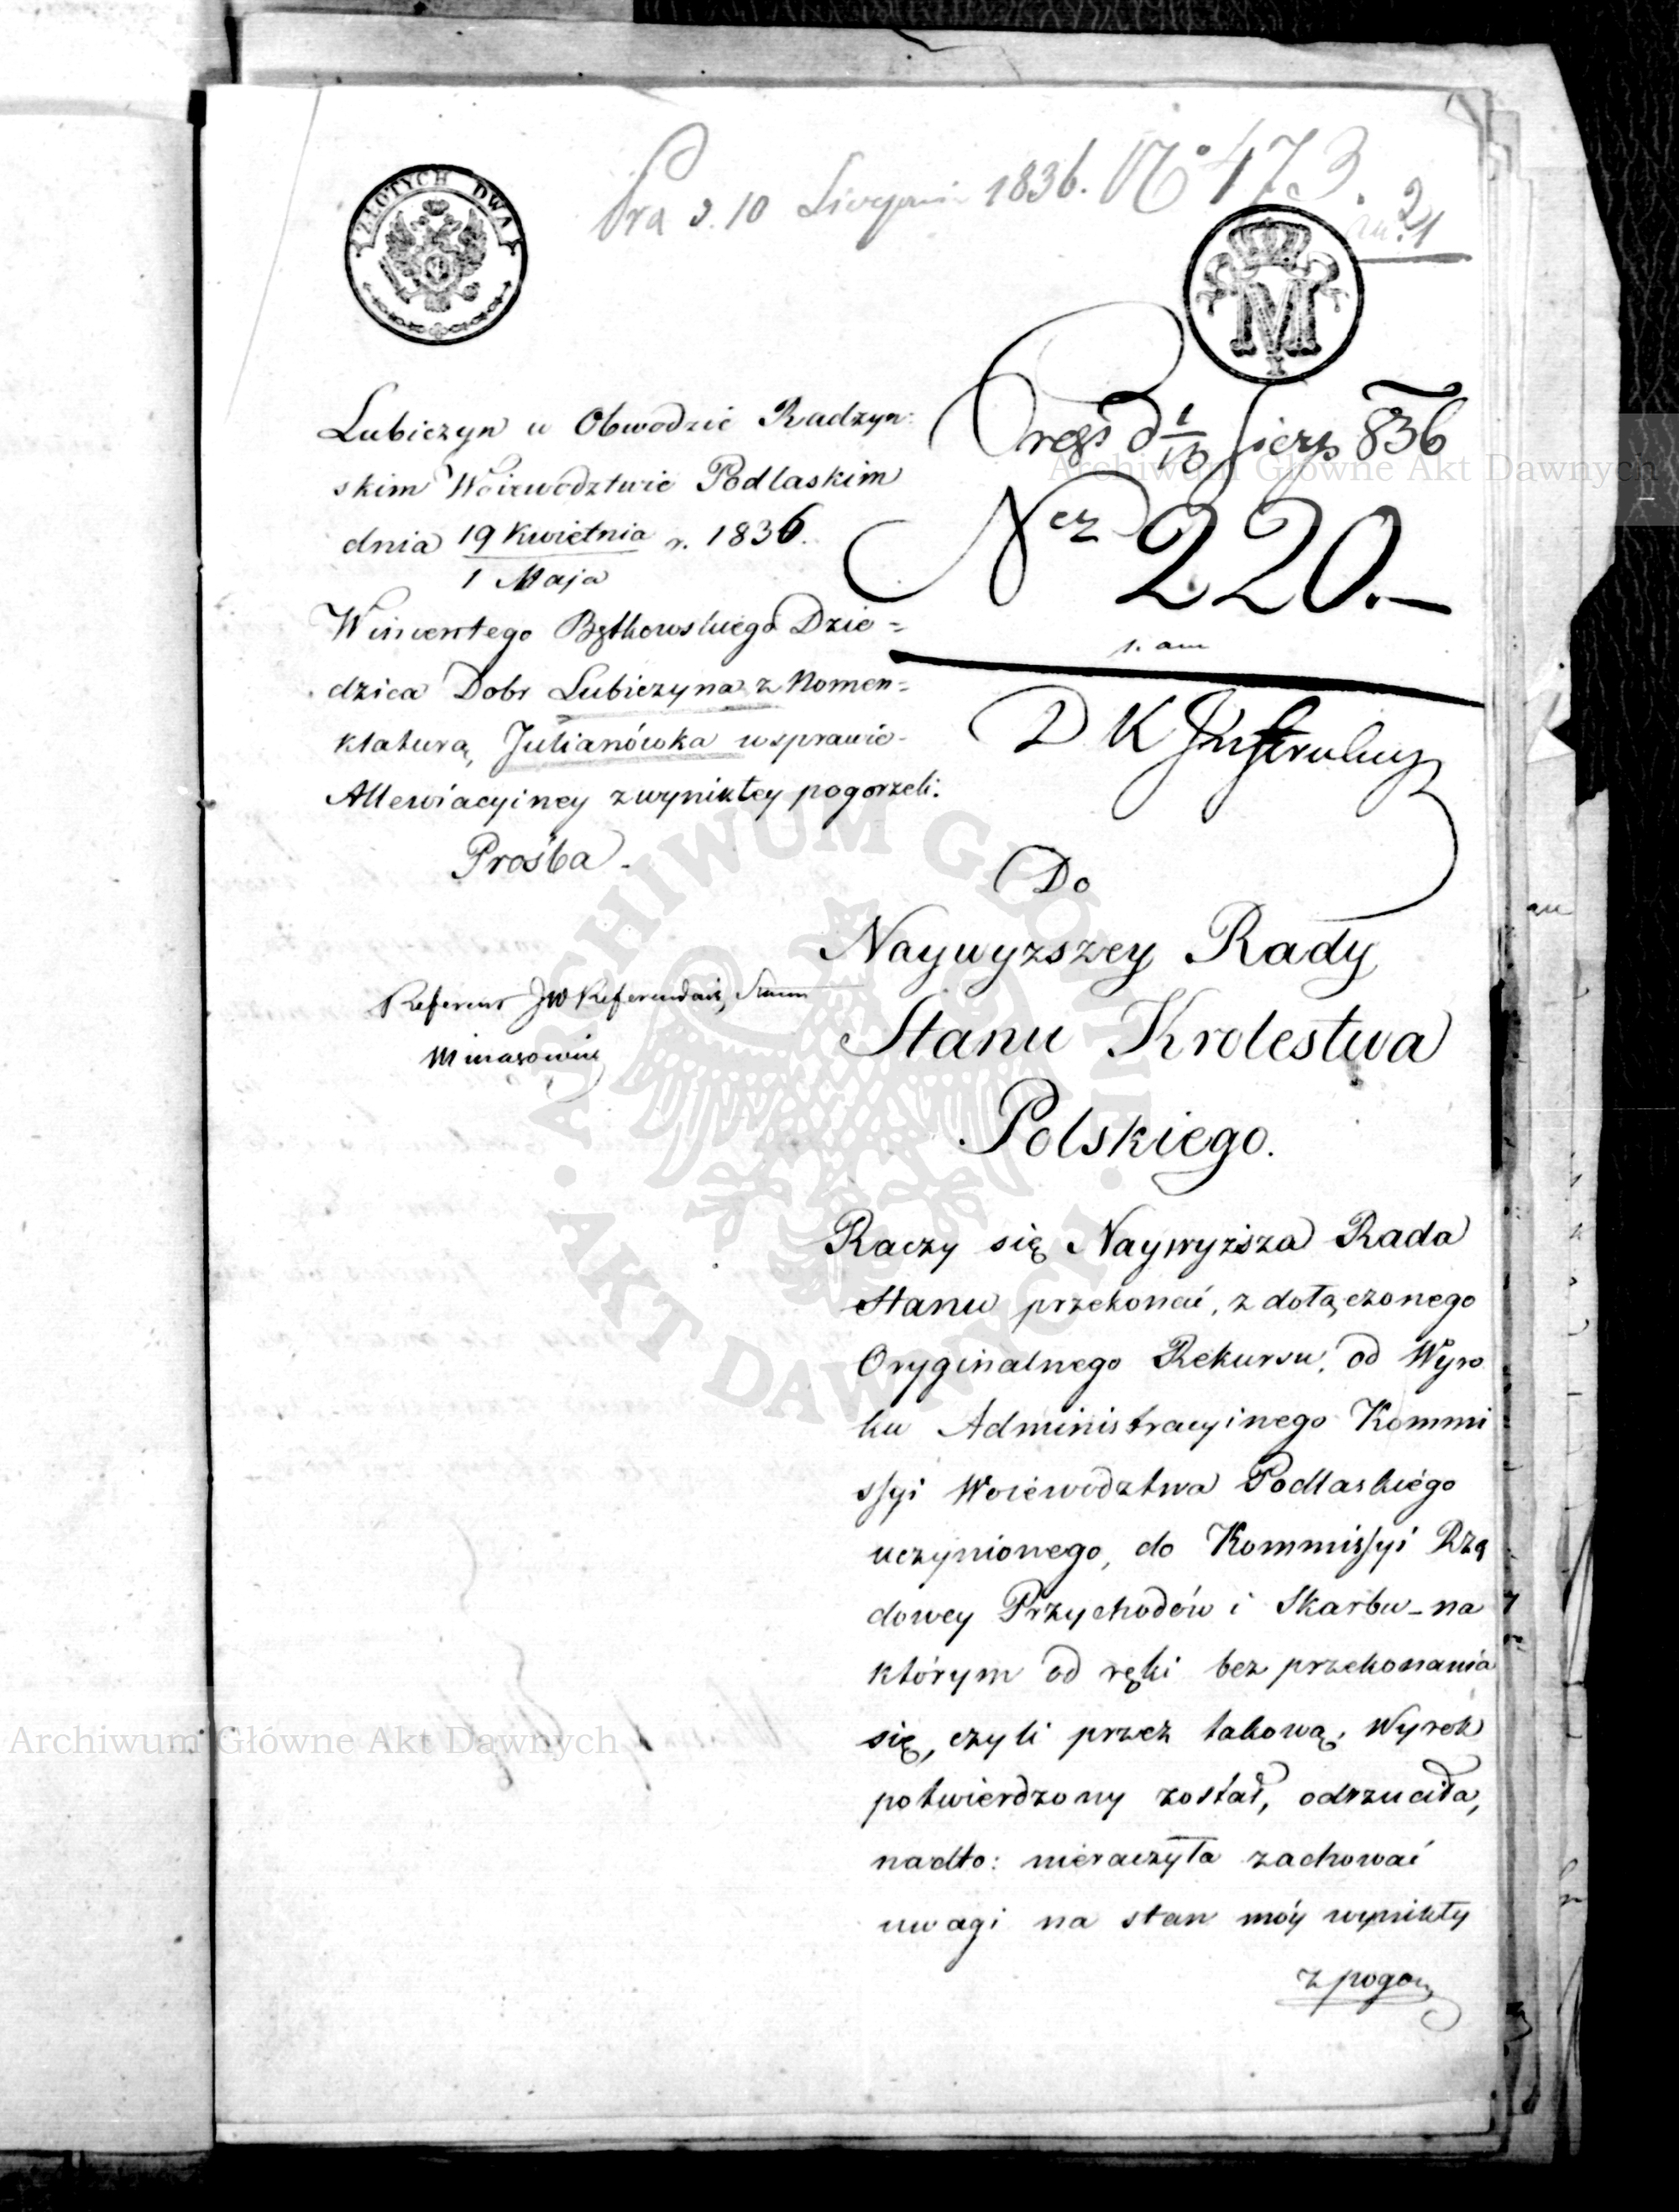 ZŁOTYCH DWA
d. 10 1836. No 473.
M
I
Lubiczyn w Obwodzie Radzyn:
skim Woiewodztwie Podlaskim
dnia 19 Kwietnia r. 1836.
1 Maja
Wincentego Bętkowskiego Dzie=
dzica Dobr Lubiczyna z Nomen=
klaturą Julianówka w sprawie
Allewiacyiney z wynikłey pogorzeli.
Prośba
Referent JW Referendarz Stanu
Minasowicz
d 1/10 Sierp 836
Ner 220.—
1. an
D K
Do
Naywyzszey Rady
Stanu Krolestwa
Polskiego.
Raczy się Naywyższa Rada
Stanu przekonać, z dołączonego
Oryginalnego Rekursu, od Wyro
ku Administracyinego Kommi
ssyi Woiewodztwa Podlaskiego
uczynionego, do Kommissyi Rzą
dowey Przychodów i Skarbu – na
którym od ręki bez przekonania
się, czyli przez takową, Wyrok
potwierdzony został, odrzuciła,
nadto: nieraczyła zachować
uwagi na stan móy wynikły
z pogo
Archiwum Główne Akt Dawnych
Archiwum Główne Akt Dawnych
ARCHIWUM GŁÓWNE
AKT DAWNYCH